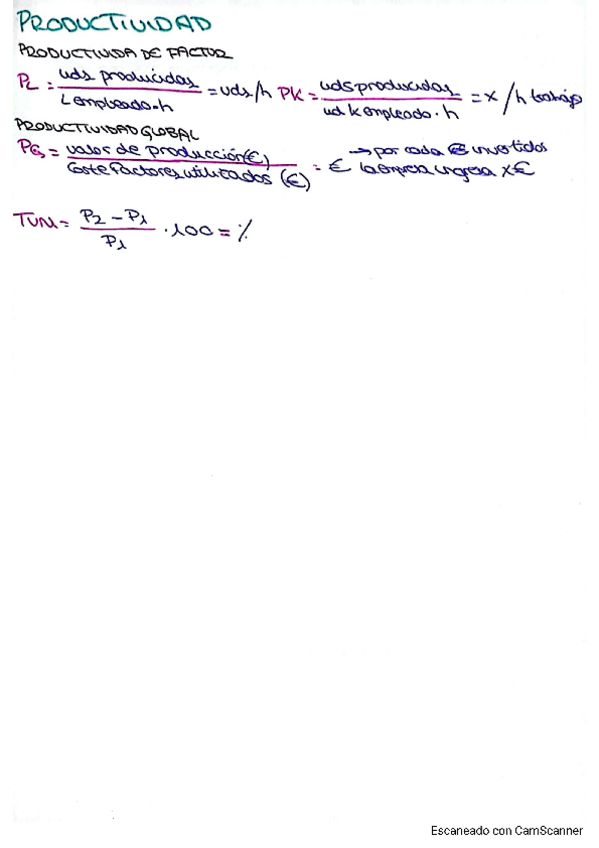 PRODUCTIVIDAD
PRODUCTIVIDA DE FACTOR
PL = uds producidas / L empleado · h = uds/h PK = uds producidas / ud K empleado · h = x /h trabajo
PRODUCTIVIDAD GLOBAL
PG = valor de producción (€) / coste factores utilizados (€) = € → por cada € invertidos la empresa ingresa x €
TVM = P2 - P1 / P1 · 100 = %
Escaneado con CamScanner